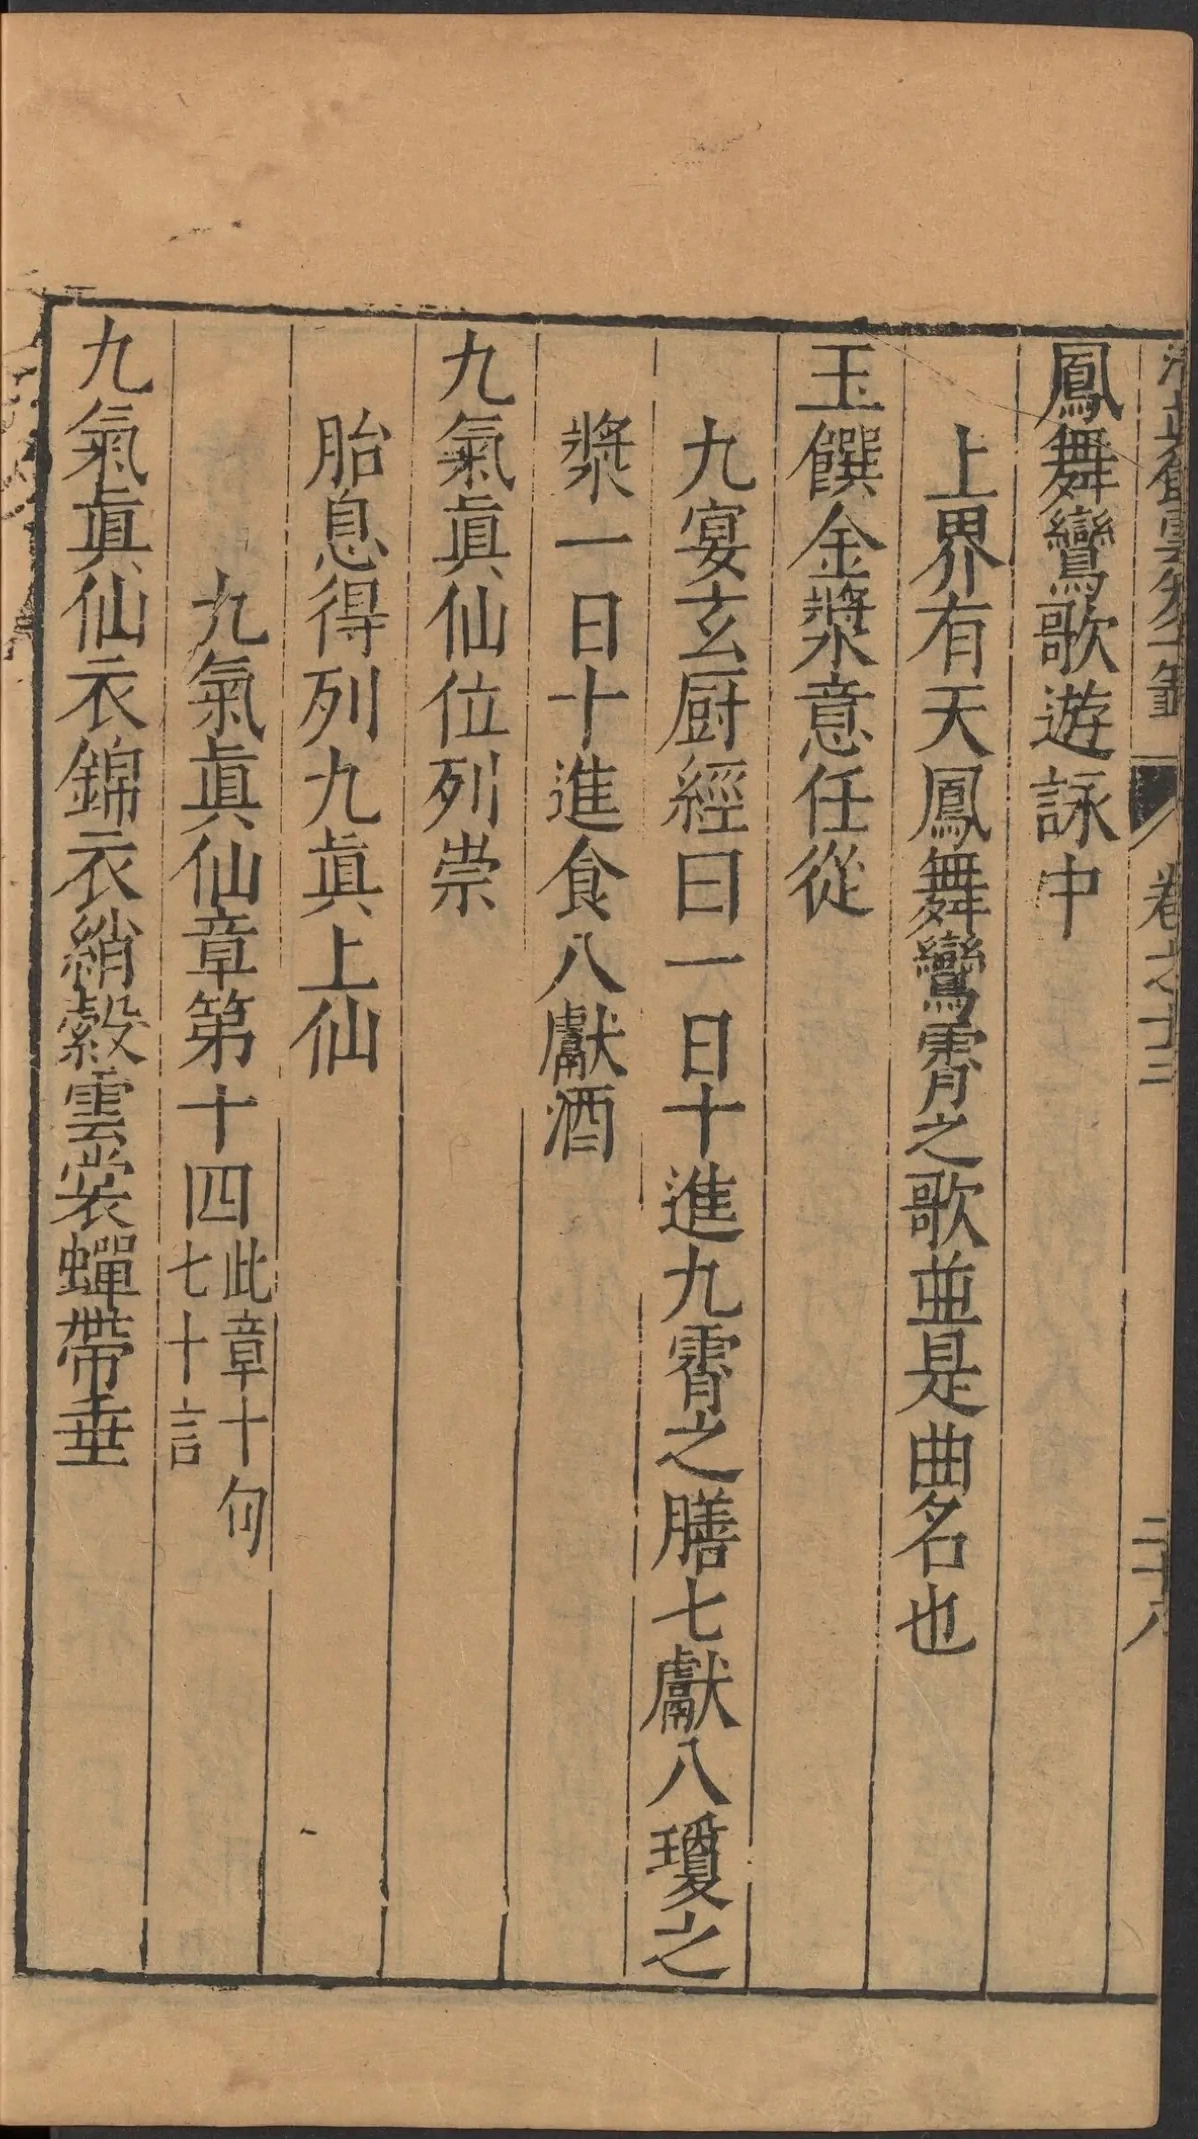 卷之十三
二十八
鳳舞鸞歌遊詠中
上界有天鳳舞鸞霄之歌並是曲名也
玉饌金漿意任從
九宴玄厨經曰一日十進九霄之膳七獻八瓊之
漿一日十進食八獻酒
九氣眞仙位列崇
胎息得列九眞上仙
九氣眞仙章第十四此章十句七十言
九氣眞仙衣錦衣綃縠雲裳蟬帶垂